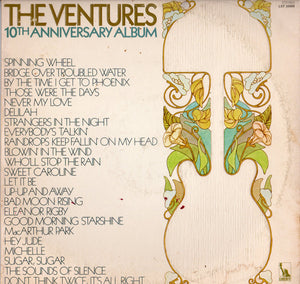 THE VENTURES
10TH ANNIVERSARY ALBUM
SPINNING WHEEL
BRIDGE OVER TROUBLED WATER
BY THE TIME I GET TO PHOENIX
THOSE WERE THE DAYS
NEVER MY LOVE
DELILAH
STRANGERS IN THE NIGHT
EVERYBODY'S TALKIN'
RAINDROPS KEEP FALLIN' ON MY HEAD
BLOWIN' IN THE WIND
WHO'LL STOP THE RAIN
SWEET CAROLINE
LET IT BE
UP-UP AND AWAY
BAD MOON RISING
ELEANOR RIGBY
GOOD MORNING STARSHINE
MacARTHUR PARK
HEY JUDE
MICHELLE
SUGAR, SUGAR
THE SOUNDS OF SILENCE
DON'T THINK TWICE, IT'S ALL RIGHT